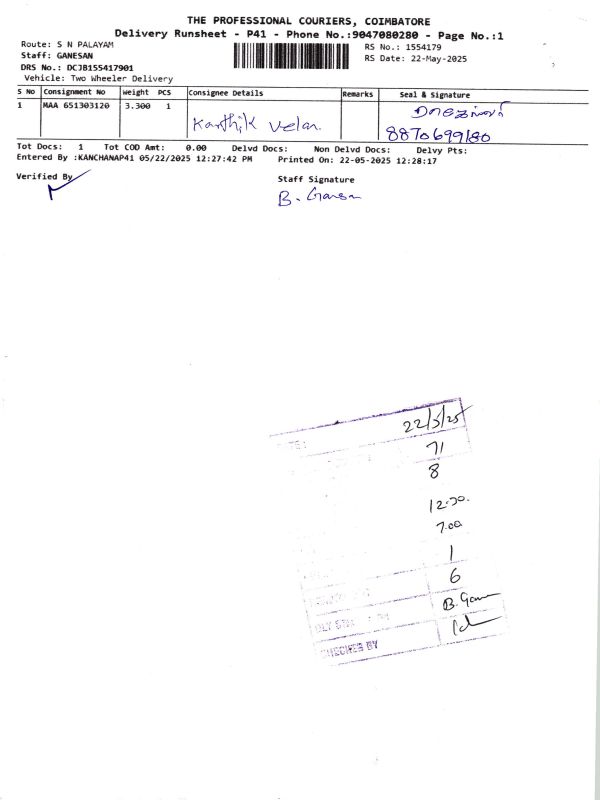 THE PROFESSIONAL COURIERS, COIMBATORE
Delivery Runsheet - P41 - Phone No.:9047080280 - Page No.:1
Route: S N PALAYAM
Staff: GANESAN
DRS No.: DCJB155417901
Vehicle: Two Wheeler Delivery
RS No.: 1554179
RS Date: 22-May-2025
S No Consignment No Weight PCS Consignee Details Remarks Seal & Signature
1 MAA 651303120 3.300 1
Karthik Velan
8870699180
Tot Docs: 1 Tot COD Amt: 0.00 Delvd Docs: Non Delvd Docs: Delvy Pts:
Entered By :KANCHANAP41 05/22/2025 12:27:42 PM Printed On: 22-05-2025 12:28:17
Verified By
Staff Signature
B. Ganesan
22/5/25
71
8
12.30
7.00
1
6
B. Gane
CHECKED BY